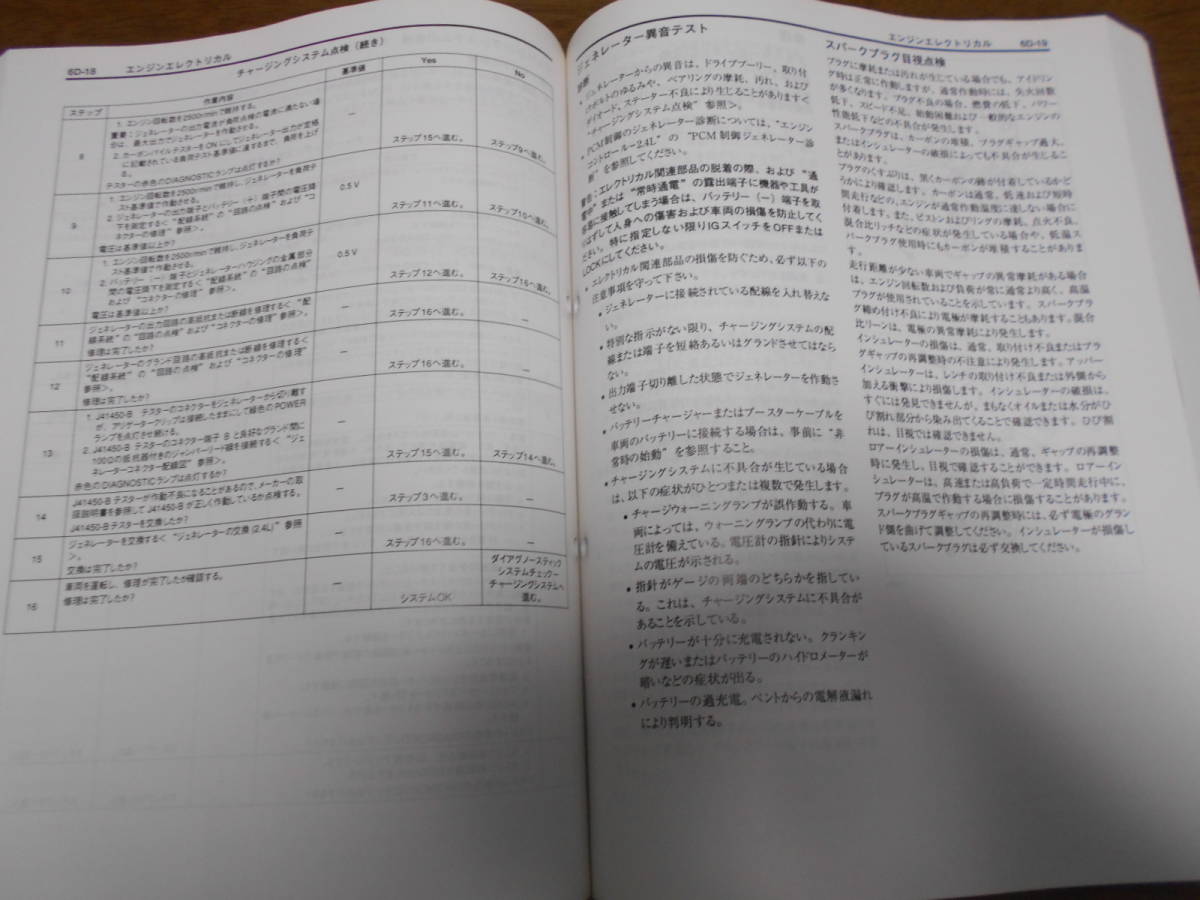 6D-18 エンジンエレクトリカル
チャージングシステム点検（続き）
ステップ 作業内容 基準値 Yes No
8
1. エンジン回転数を2500r/minで維持する。
重要：ジェネレーターの出力電流が負荷点検の電流に満たない場
合は、最大出力でジェネレーターを作動させる。
2. カーボンパイルテスターをONにしてジェネレーター出力が定格
に記載されている負荷テスト基準値に達するまで、負荷を上げ
る。
テスターの赤色のDIAGNOSTICランプは点灯するか？
－ ステップ15へ進む。 ステップ9へ進む。
9
1. エンジン回転数を2500r/minで維持し、ジェネレーターを負荷テ
スト基準値で作動させる。
2. ジェネレーターの出力端子とバッテリー（＋）端子間の電圧降
下を測定する＜“配線系統”の“回路の点検”および“コ
ネクターの修理”参照＞。
電圧は基準値以上か？
0.5 V ステップ11へ進む。 ステップ10へ進む。
10
1. エンジン回転数を2500r/minで維持し、ジェネレーターを負荷テ
スト基準値で作動させる。
2. バッテリー（－）端子とジェネレーターハウジングの金属部分
間の電圧降下を測定する＜“配線系統”の“回路の点検”
および“コネクターの修理”参照＞。
電圧は基準値以上か？
0.5 V ステップ12へ進む。 ステップ16へ進む。
11
ジェネレーターの出力回路の高抵抗または断線を修理する＜“配
線系統”の“回路の点検”および“コネクターの修理”参照＞。
修理は完了したか？
－ ステップ16へ進む。 －
12
ジェネレーターのグランド回路の高抵抗または断線を修理する＜
“配線系統”の“回路の点検”および“コネクターの修理”
参照＞。
修理は完了したか？
－ ステップ16へ進む。 －
13
1. J41450-B テスターのコネクターをジェネレーターから切り離す
が、アリゲータークリップは接続したままにして緑色のPOWER
ランプを点灯させ続ける。
2. J41450-B テスターのコネクター端子 B と良好なグランド間に
100Ωの抵抗器付きのジャンパーリード線を接続する＜“ジェ
ネレーターコネクター配線図”参照＞。
赤色のDIAGNOSTICランプは点灯するか？
－ ステップ15へ進む。 ステップ14へ進む。
14
J41450-Bテスターが作動不良になることがあるので、メーカーの取
扱説明書を参照してJ41450-Bが正しく作動しているか点検する。
J41450-Bテスターを交換したか？
－ ステップ3へ進む。 －
15
ジェネレーターを交換する＜“ジェネレーターの交換（2.4L）”参照
＞。
交換は完了したか？
－ ステップ16へ進む。 －
16
車両を運転し、修理が完了したか確認する。
修理は完了したか？
－ システムOK
ダイアグノースティック
システムチェックー
チャージングシステムへ
進む。
エンジンエレクトリカル 6D-19
ジェネレーター異音テスト
診断
• ジェネレーターからの異音は、ドライブプーリー、取付
ボルトのゆるみや、ベアリングの摩耗、汚れ、および
ダイオード、ステーター不良により生じることがあります＜
“チャージングシステム点検”参照＞。
• PCM制御のジェネレーター診断については、“エンジン
コントロール－2.4L”の“PCM制御ジェネレーター診
断”を参照してください。
警告：エレクトリカル関連部品の脱着の際、および“通
電中”または“常時通電”の露出端子に機器や工具が
容易に接触してしまう場合は、バッテリー（－）端子を取
りはずして人身への傷害および車両の損傷を防止してく
ださい。特に指定しない限りIGスイッチをOFFまたは
LOCKにしてください。
• エレクトリカル関連部品の損傷を防ぐため、必ず以下の
注意事項を守って下さい。
• ジェネレーターに接続されている配線を入れ替えな
い。
• 特別な指示がない限り、チャージングシステムの配
線または端子を短絡あるいはグランドさせてはなら
ない。
• 出力端子切り離した状態でジェネレーターを作動さ
せない。
• バッテリーチャージャーまたはブースターケーブルを
車両のバッテリーに接続する場合は、事前に“非
常時の始動”を参照すること。
• チャージングシステムに不具合が生じている場合
は、以下の症状がひとつまたは複数で発生します。
• チャージウォーニングランプが誤作動する。車
両によっては、ウォーニングランプの代わりに電
圧計を備えている。電圧計の指針によりシステ
ムの電圧が示される。
• 指針がゲージの両端のどちらかを指してい
る。これは、チャージングシステムに不具合が
あることを示している。
• バッテリーが十分に充電されない。クランキン
グが遅いまたはバッテリーのハイドロメーターが
暗いなどの症状が出る。
• バッテリーの過充電。ベントからの電解液漏れ
により判明する。
スパークプラグ目視点検
プラグに摩耗または汚れが生じている場合でも、アイドリン
グ時は正常に作動しますが、通常作動時には、失火回数
が多くなります。プラグ不良の場合、燃費の低下、パワー
低下、スピード不足、始動困難および一般的なエンジンの
性能低下などの不具合が発生します。
スパークプラグは、カーボンの堆積、プラグギャップ過大、
またはインシュレーターの破損によっても不具合が生じるこ
とがあります。
プラグのくすぶりは、黒くカーボンの跡が付着しているかど
うかにより確認します。カーボンは通常、低速および短時
間走行などの、エンジンが通常作動温度に達しない場合に
付着します。また、ピストンおよびリングの摩耗、点火不良、
混合比リッチなどの症状が発生している場合や、低温ス
パークプラグ使用時にもカーボンが堆積することがありま
す。
走行距離が少ない車両でギャップの異常摩耗がある場合
は、エンジン回転数および負荷が常に通常より高く、高温
プラグが使用されていることを示しています。スパークプラ
グ締め付け不良により電極が摩耗することもあります。混合
比リーンは、電極の異常摩耗により発生します。
インシュレーターの損傷は、通常、取り付け不良またはプラ
グギャップの再調整時の不注意により発生します。アッパー
インシュレーターは、レンチの取り付け不良または外側から
加える衝撃により損傷します。インシュレーターの破損は、
すぐには発見できませんが、まもなくオイルまたは水分がひ
び割れ部分から染み出てくることで確認できます。ひび割
れは、目視では確認できません。
ロアーインシュレーターの損傷は、通常、ギャップの再調整
時に発生し、目視で確認することができます。ロアーイン
シュレーターは、高速または高負荷で一定時間走行中に、
プラグが高温で作動する場合に損傷することがあります。
スパークプラグギャップの再調整時には、必ず電極のグラン
ド側を曲げて調整してください。インシュレーターが損傷し
ているスパークプラグは必ず交換してください。